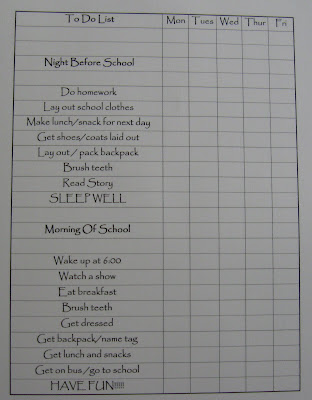 To Do List Mon Tues Wed Thur Fri
Night Before School
Do homework
Lay out school clothes
Make lunch/snack for next day
Get shoes/coats laid out
Lay out / pack backpack
Brush teeth
Read Story
SLEEP WELL
Morning Of School
Wake up at 6:00
Watch a show
Eat breakfast
Brush teeth
Get dressed
Get backpack/name tag
Get lunch and snacks
Get on bus /go to school
HAVE FUN!!!!!